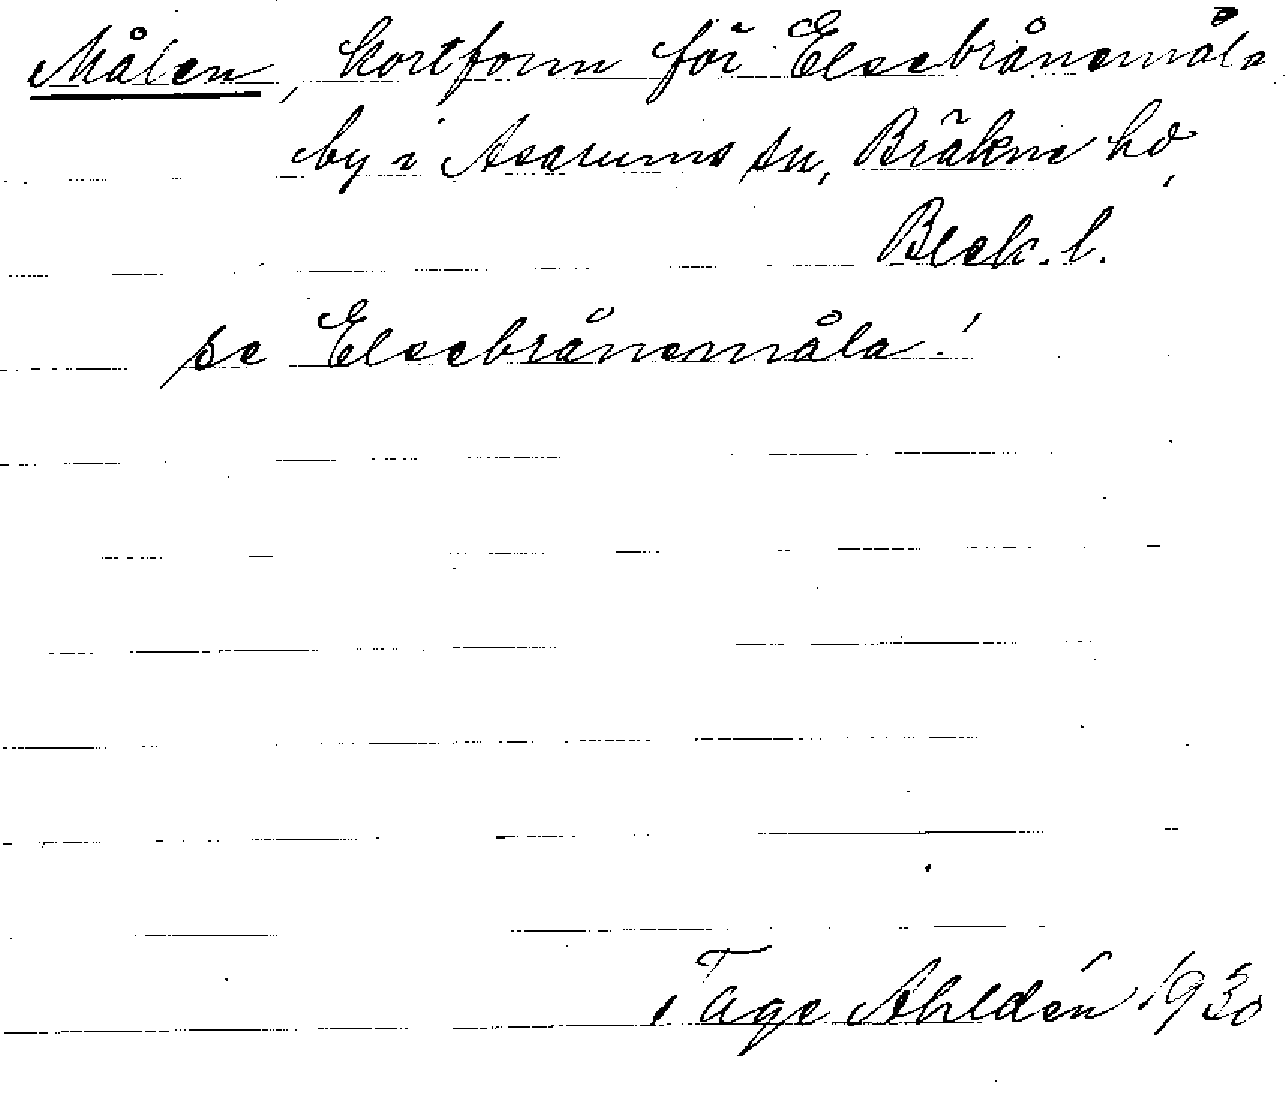 Målen, kortform för Elsebrånemåla
by i Asarums sn, Bräkne hd,
Blek. l.
se Elsebrånemåla!
Tage Ahldén 1930